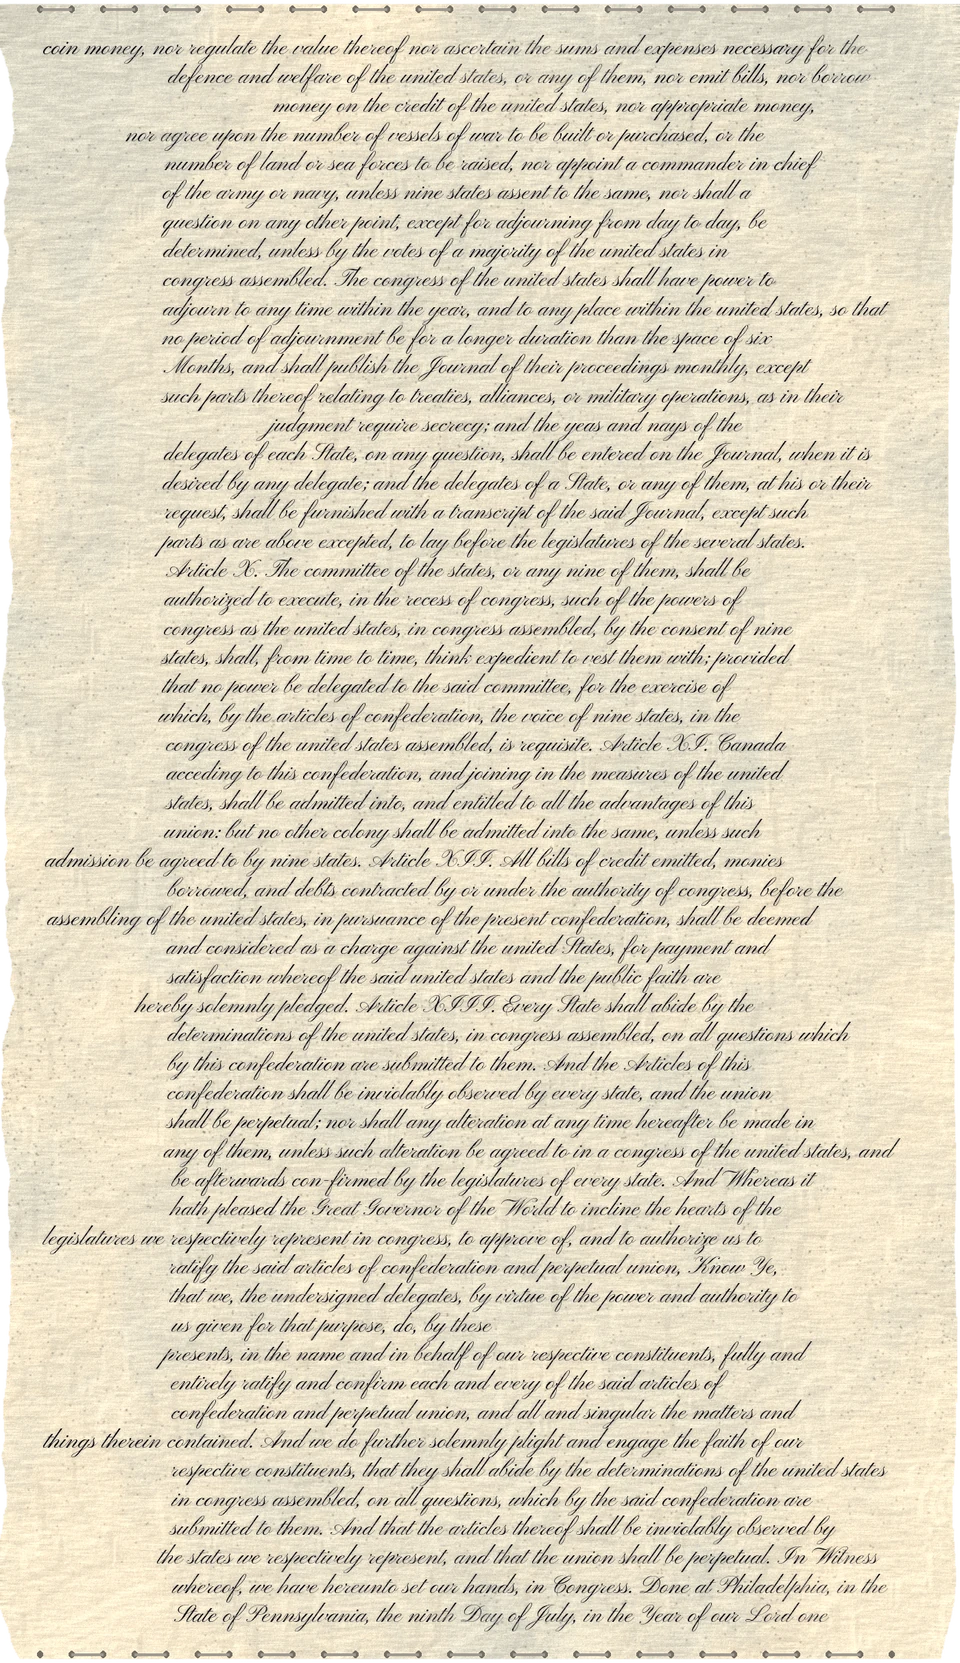 coin money, nor regulate the value thereof nor ascertain the sums and expenses necessary for the
defence and welfare of the united states, or any of them, nor emit bills, nor borrow
money on the credit of the united states, nor appropriate money,
nor agree upon the number of vessels of war to be built or purchased, or the
number of land or sea forces to be raised, nor appoint a commander in chief
of the army or navy, unless nine states assent to the same, nor shall a
question on any other point, except for adjourning from day to day, be
determined, unless by the votes of a majority of the united states in
congress assembled. The congress of the united states shall have power to
adjourn to any time within the year, and to any place within the united states, so that
no period of adjournment be for a longer duration than the space of six
Months, and shall publish the Journal of their proceedings monthly, except
such parts thereof relating to treaties, alliances, or military operations, as in their
judgment require secrecy; and the yeas and nays of the
delegates of each State, on any question, shall be entered on the Journal, when it is
desired by any delegate; and the delegates of a State, or any of them, at his or their
request, shall be furnished with a transcript of the said Journal, except such
parts as are above excepted, to lay before the legislatures of the several states.
Article X. The committee of the states, or any nine of them, shall be
authorized to execute, in the recess of congress, such of the powers of
congress as the united states, in congress assembled, by the consent of nine
states, shall, from time to time, think expedient to vest them with; provided
that no power be delegated to the said committee, for the exercise of
which, by the articles of confederation, the voice of nine states, in the
congress of the united states assembled, is requisite. Article XI. Canada
acceding to this confederation, and joining in the measures of the united
states, shall be admitted into, and entitled to all the advantages of this
union: but no other colony shall be admitted into the same, unless such
admission be agreed to by nine states. Article XII. All bills of credit emitted, monies
borrowed, and debts contracted by or under the authority of congress, before the
assembling of the united states, in pursuance of the present confederation, shall be deemed
and considered as a charge against the united States, for payment and
satisfaction whereof the said united states and the public faith are
hereby solemnly pledged. Article XIII. Every State shall abide by the
determinations of the united states, in congress assembled, on all questions which
by this confederation are submitted to them. And the Articles of this
confederation shall be inviolably observed by every state, and the union
shall be perpetual; nor shall any alteration at any time hereafter be made in
any of them, unless such alteration be agreed to in a congress of the united states, and
be afterwards con-firmed by the legislatures of every state. And Whereas it
hath pleased the Great Governor of the World to incline the hearts of the
legislatures we respectively represent in congress, to approve of, and to authorize us to
ratify the said articles of confederation and perpetual union, Know Ye,
that we, the undersigned delegates, by virtue of the power and authority to
us given for that purpose, do, by these
presents, in the name and in behalf of our respective constituents, fully and
entirely ratify and confirm each and every of the said articles of
confederation and perpetual union, and all and singular the matters and
things therein contained. And we do further solemnly plight and engage the faith of our
respective constituents, that they shall abide by the determinations of the united states
in congress assembled, on all questions, which by the said confederation are
submitted to them. And that the articles thereof shall be inviolably observed by
the states we respectively represent, and that the union shall be perpetual. In Witness
whereof, we have hereunto set our hands, in Congress. Done at Philadelphia, in the
State of Pennsylvania, the ninth Day of July, in the Year of our Lord one